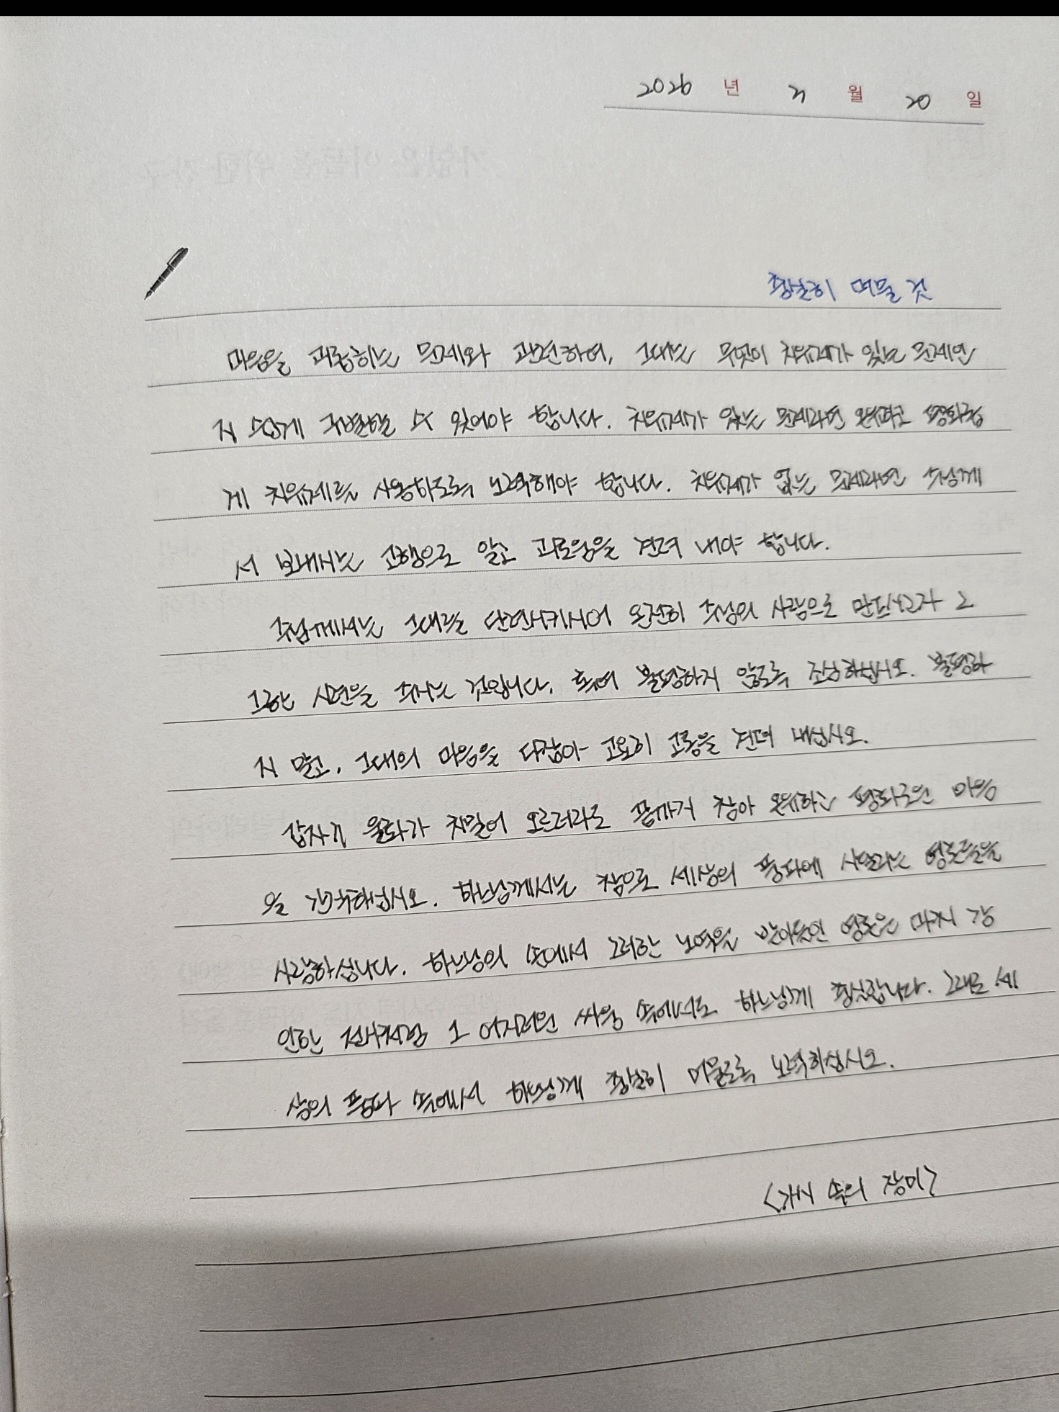 2026 년 3 월 20 일
충실히 머물 것
마음을 괴롭히는 문제와 관련하여, 그대는 무엇이 치유제가 있는 문제인
지 쉽게 구별할 수 있어야 합니다. 치유제가 있는 문제라면 온유하고 평화롭
게 치유제를 사용하도록 노력해야 합니다. 치유제가 없는 문제라면 주님께
서 보내시는 고행으로 알고 괴로움을 견뎌 내야 합니다.
주님께서는 그대를 단련시키시어 온전히 주님의 사람으로 만드시고자 그
그한 시련을 주시는 것입니다. 혹여 불평하지 않도록 조심하십시오. 불평하
지 말고, 그대의 마음을 다잡아 고요히 고통을 견뎌 내십시오.
갑자기 울화가 치밀어 오르더라도 끝까지 참아 온유하고 평화로운 마음
을 간직하십시오. 하느님께서는 참으로 세상의 풍파에 시달리는 영혼들을
사랑하십니다. 하느님의 손에서 그러한 노역을 받아들인 영혼은 마치 강
인한 전사처럼 그 어지러운 싸움 속에서도 하느님께 충실합니다. 그대로 세
상의 풍파 속에서 하느님께 충실히 머물도록 노력하십시오.
<가시 속의 장미>